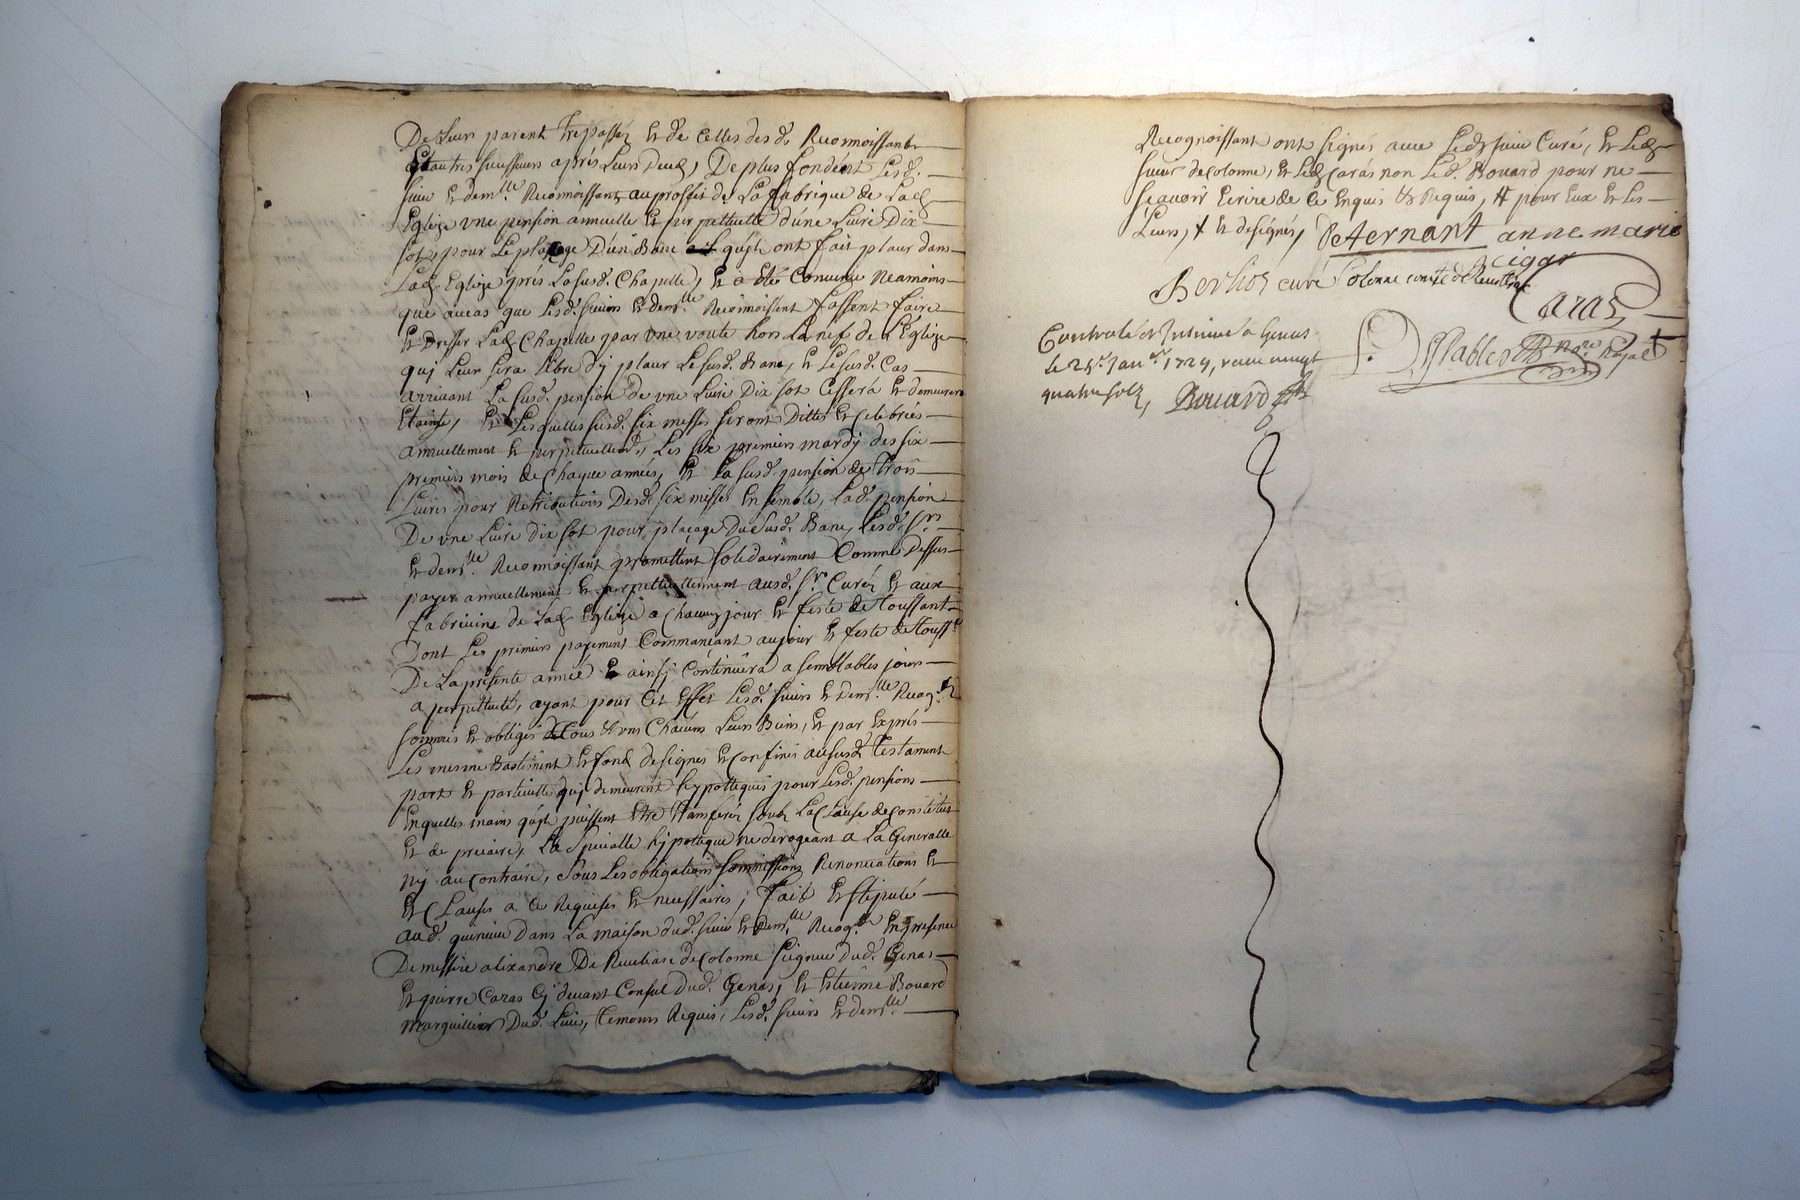 De Leurs parent trepasséz Et de Celles desd. Reconnoissants
Et autres successeurs aprés Leurs deceds, De plus fondent Lesd.
sieur Et dem.lle Reconnoissants au proffit de La fabrique de Lad.
Eglize une pension annuelle Et perpettuelle d'une Livre Dix
sols, pour Le plaçage D'un Banc qu'jls ont fait placer dans
Lad. Eglize prés Lasusd. Chapelle, Et a été Convenu neamoins
que aucas que Lesd. sieurs Et dem.lle Reconnoissent fassent faire
Et Dresser Lad. Chapelle par une voute hors La nef de L'Eglize
quj Leur sera Libre d'y placer Le susd. Banc, Et Lésusd. Cas
arrivant La susd. pension de une Livre Dix sol Cessera Et demeurera
Etainte, Et Lesquelles susd. six messes seront Dittes Et Celebrées
annuellement Et perpetuellem.t, Les six premiers mardy des six
premiers mois de Chaque années, Et La susd. pension de trois
Livres pour Rétributions Desd. six messes Ensemble, Lad. pension
De une Livre dix sol pour plaçage Du susd. Banc, Lesd. Srs
Et dem.lle Reconnoissant promettent solidairement Comme Dessus
payer annuellement Et perpettuellement ausd. Sr. Curéz Et aux
fabriciens de Lad. Eglize a Chacun jour Et feste de Toussant
Dont Les premiers payement Commancant aujour Et feste de Touss.t
De La présente année Et ainsj Continuera a semblables jours
a perpettuité, ayant pour Cet Effet Lesd. sieurs Et dem.lle Recog.ts
soumis Et obligés Tous Et uns Chacuns Leurs Biens, Et par Exprés
Les mesme Bastiment Et fond designés Et Confinés ausus.d Testament
part Et particuille quj demeurent hypottequés pour Lesd. pensions
Enquelles mains qu'jls puissent Etre Tranférés soubs La Clause de constitut
Et de precaire, La Speciale hypoteque ne derogeant a La Generalle
Nj au Contraire, Sous Les obligations soumissions Renonciations Et
Et Clauses a Ce Requises Et necessaires, fait Et stipulé
aud. Dans La maison dud. sieur Et dem.lle Recog.ts En presence
De messire alixandre De Reveliasc de Colonne seigneur dud. Genas
Et pierre Caras Cj devant Consul dud. Genas, Et Etienne Bouard
marguillier Dud. Lieu, temoins Requis, Lesd. sieurs Et dem.lle
Recognoissant ont signés avec Led. sieur Curé, Et Led.
sieur de colonne, Et Led. Caras non Led. Bouard pour ne
sçavoir Ecrire de Ce Enquis Et Requis, # pour Eux Et Les
Leurs, + Et designés, P aternant anne marie
Berlioz curé Colonne
Caras
Controlé Et Insinué a Genas
le 25e. Jan.er 1729, receu vingt
quatre sols, Bouard
Royal